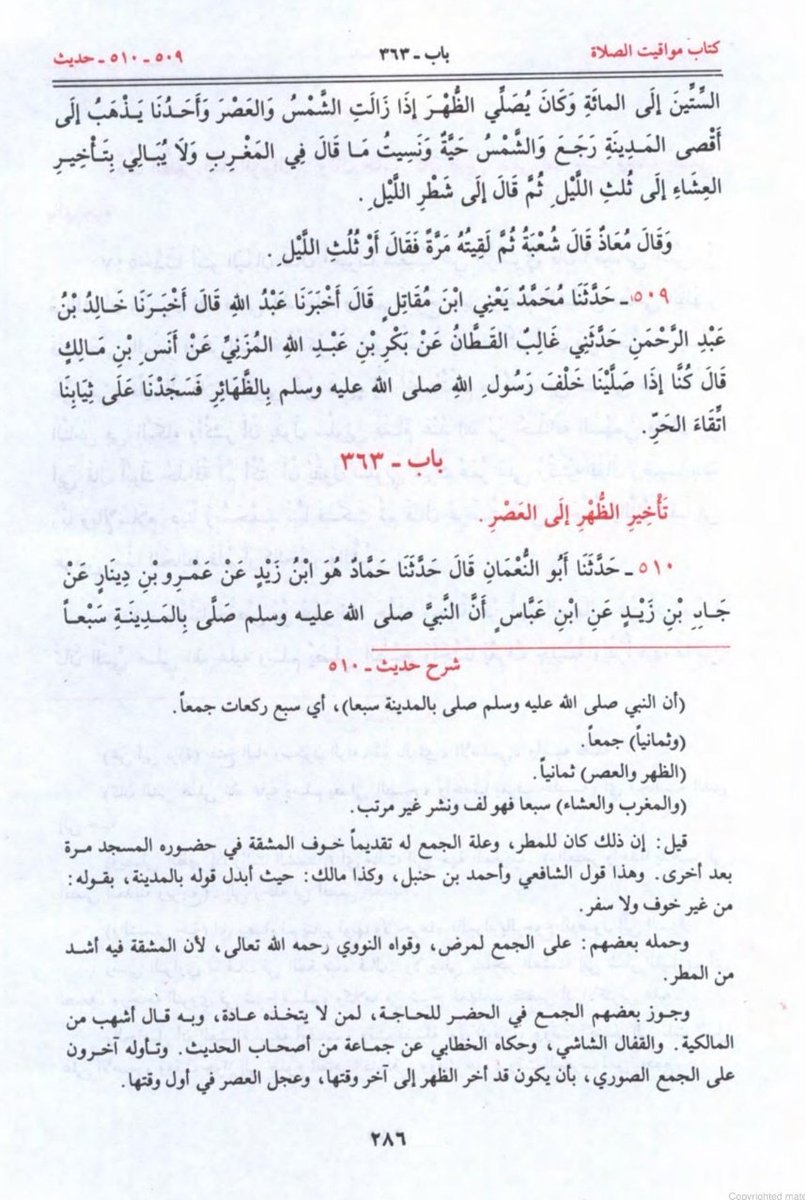 كتاب مواقيت الصلاة باب - ٣٦٣ ٥٠٩ - ٥١٠ - حديث
السِّتِّينَ إِلَى المائَةِ وَكَانَ يُصَلِّي الظُّهْرَ إِذَا زَالَتِ الشَّمْسُ وَالعَصْرَ وَأَحَدُنَا يَذْهَبُ إِلَى
أَقْصى المَدِينَةِ رَجَعَ وَالشَّمْسُ حَيَّةٌ وَنَسيتُ مَا قَالَ فِي المَغْرِبِ وَلَا يُبَالِي بِتَأْخِيرِ
العِشَاءِ إِلَى ثُلثِ اللَّيْلِ ثُمَّ قالَ إِلَى شَطْرِ اللَّيْلِ.
وَقَالَ مُعَاذٌ قالَ شُعْبَةُ ثُمَّ لَقِيتُهُ مَرَّةً فَقَالَ أَوْ ثُلُثِ اللَّيْلِ.
٥٠٩ - حَدَّثَنَا مُحَمَّدٌ يَعْنِي ابْنَ مُقَاتِلٍ قَالَ أَخْبَرَنَا عَبْدُ اللهِ قَالَ أَخْبَرَنَا خَالِدُ بْنُ
عَبْدِ الرَّحْمَنِ حَدَّثَنِي غَالِبٌ القَطَّانُ عَنْ بَكْرِ بْنِ عَبْدِ اللهِ المُزَنِيِّ عَنْ أَنَسِ بْنِ مَالِكٍ
قَالَ كُنَّا إِذَا صَلَّيْنَا خَلْفَ رَسُولِ اللهِ صلى الله عليه وسلم بِالظَّهَائِرِ فَسَجَدْنَا عَلَى ثِيَابِنَا
اتِّقَاءَ الحَرِّ.
باب - ٣٦٣
تَأْخِيرِ الظُّهْرِ إِلَى العَصْرِ.
٥١٠ - حَدَّثَنَا أَبُو النُّعْمَانِ قَالَ حَدَّثَنَا حَمَّادٌ هُوَ ابْنُ زَيْدٍ عَنْ عَمْرو بنِ دِينَارٍ عَنْ
جَابِرِ بْنِ زَيْدٍ عَنِ ابْنِ عَبَّاسٍ أَنَّ النَّبِيَّ صلى الله عليه وسلم صَلَّى بِالمَدِينَةِ سَبْعاً
شرح حديث - ٥١٠
(أن النبي صلى الله عليه وسلم صلى بالمدينة سبعا)، أي سبع ركعات جمعاً.
(وثمانياً) جمعاً.
(الظهر والعصر) ثمانياً.
(والمغرب والعشاء) سبعا فهو لف ونشر غير مرتب.
قيل: إن ذلك كان للمطر، وعلة الجمع له تقديماً خوف المشقة في حضوره المسجد مرة
بعد أخرى. وهذا قول الشافعي وأحمد بن حنبل، وكذا مالك: حيث أبدل قوله بالمدينة، بقوله:
من غير خوف ولا سفر.
وحمله بعضهم: على الجمع لمرض، وقواه النووي رحمه الله تعالى، لأن المشقة فيه أشد
من المطر.
وجوز بعضهم الجمع في الحضر للحاجة، لمن لا يتخذه عادة، وبه قال أشهب من
المالكية. والقفال الشاشي، وحكاه الخطابي عن جماعة من أصحاب الحديث. وتأوله آخرون
على الجمع الصوري، بأن يكون قد أخر الظهر إلى آخر وقتها، وعجل العصر في أول وقتها.
٢٨٦
Copyrighted mate